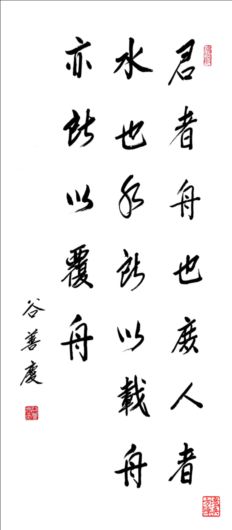 君者舟也庶人者
水也水能以载舟
亦能以覆舟
谷善庆